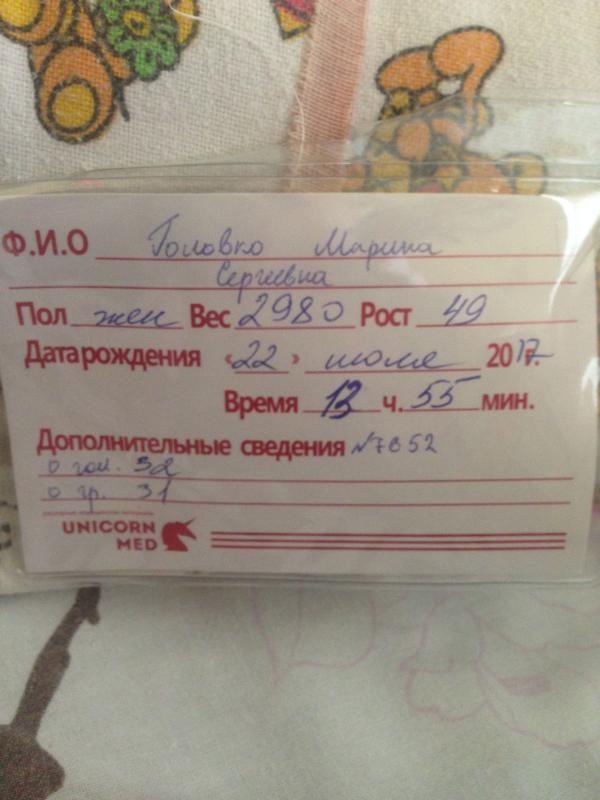 Ф.И.О Головко Марина
Сергеевна
Пол жен Вес 2980 Рост 49
Дата рождения «22» июля 2017г.
Время 13 ч. 55 мин.
Дополнительные сведения №7652
о гол. 32
о гр. 31
UNICORN
MED